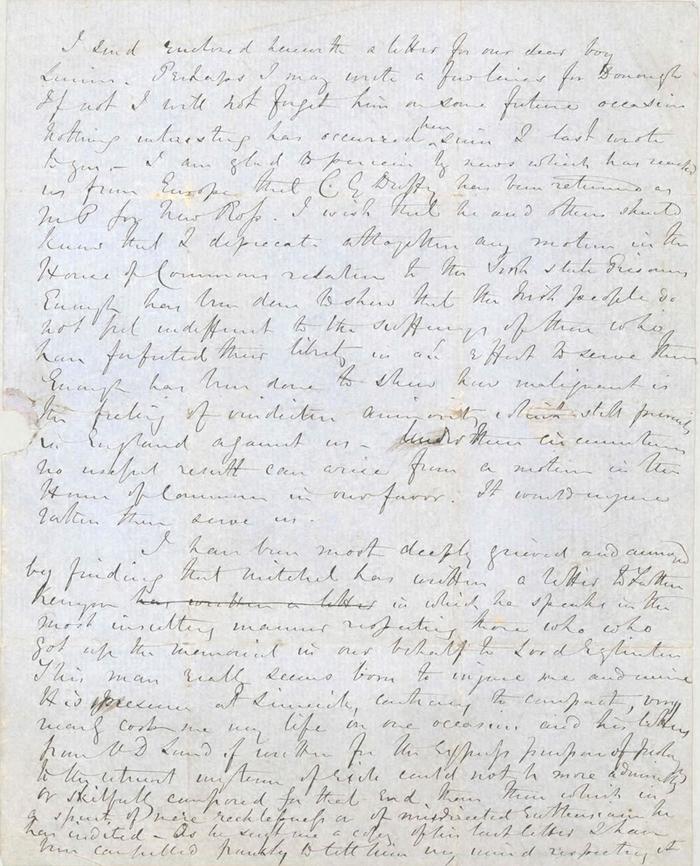 I send enclosed herewith a letter for our dear boy
Lucius. Perhaps I may write a few lines for Donough
If not I will not forget him on some future occasion
Nothing interesting has occurred here since I last wrote
to you - I am glad to perceive by news which has reached
us from Europe that C. G. Duffy has been returned as
MP for New Ross. I wish that he and others should
know that I deprecate altogether any motion in the
House of Commons relation to the Irish state Prisoners
Enough has been done to show that the Irish people do
not feel indifferent to the sufferings of those who
have forfeited their liberty in an effort to serve them
Enough has been done to shew how malignant is
the feeling of vindictive animosity which still prevails
in England against us - Under these circumstances
no useful result can arise from a motion in the
House of Commons in our favor. It would injure
rather than serve us.
I have been most deeply grieved and annoyed
by finding that Mitchel has written a letter to Father
Kenyon has written a letter in which he speaks in the
most insulting manner respecting those who who
got up the memorial in our behalf to Lord Eglinton
This man really seems born to injure me and mine
His presence at Limerick, contrary to compact, very
nearly cost me my life on one occasion and his letters
from V D Land if written for the express purpose of
to the utmost of exile could not be more admirably
or skilfully composed for that end than those which in
a spirit of mere recklessness or of misdirected enthusiasm he
has indited - As he sent me a copy of his last letter I have
been compelled frankly to tell him my mind respecting it